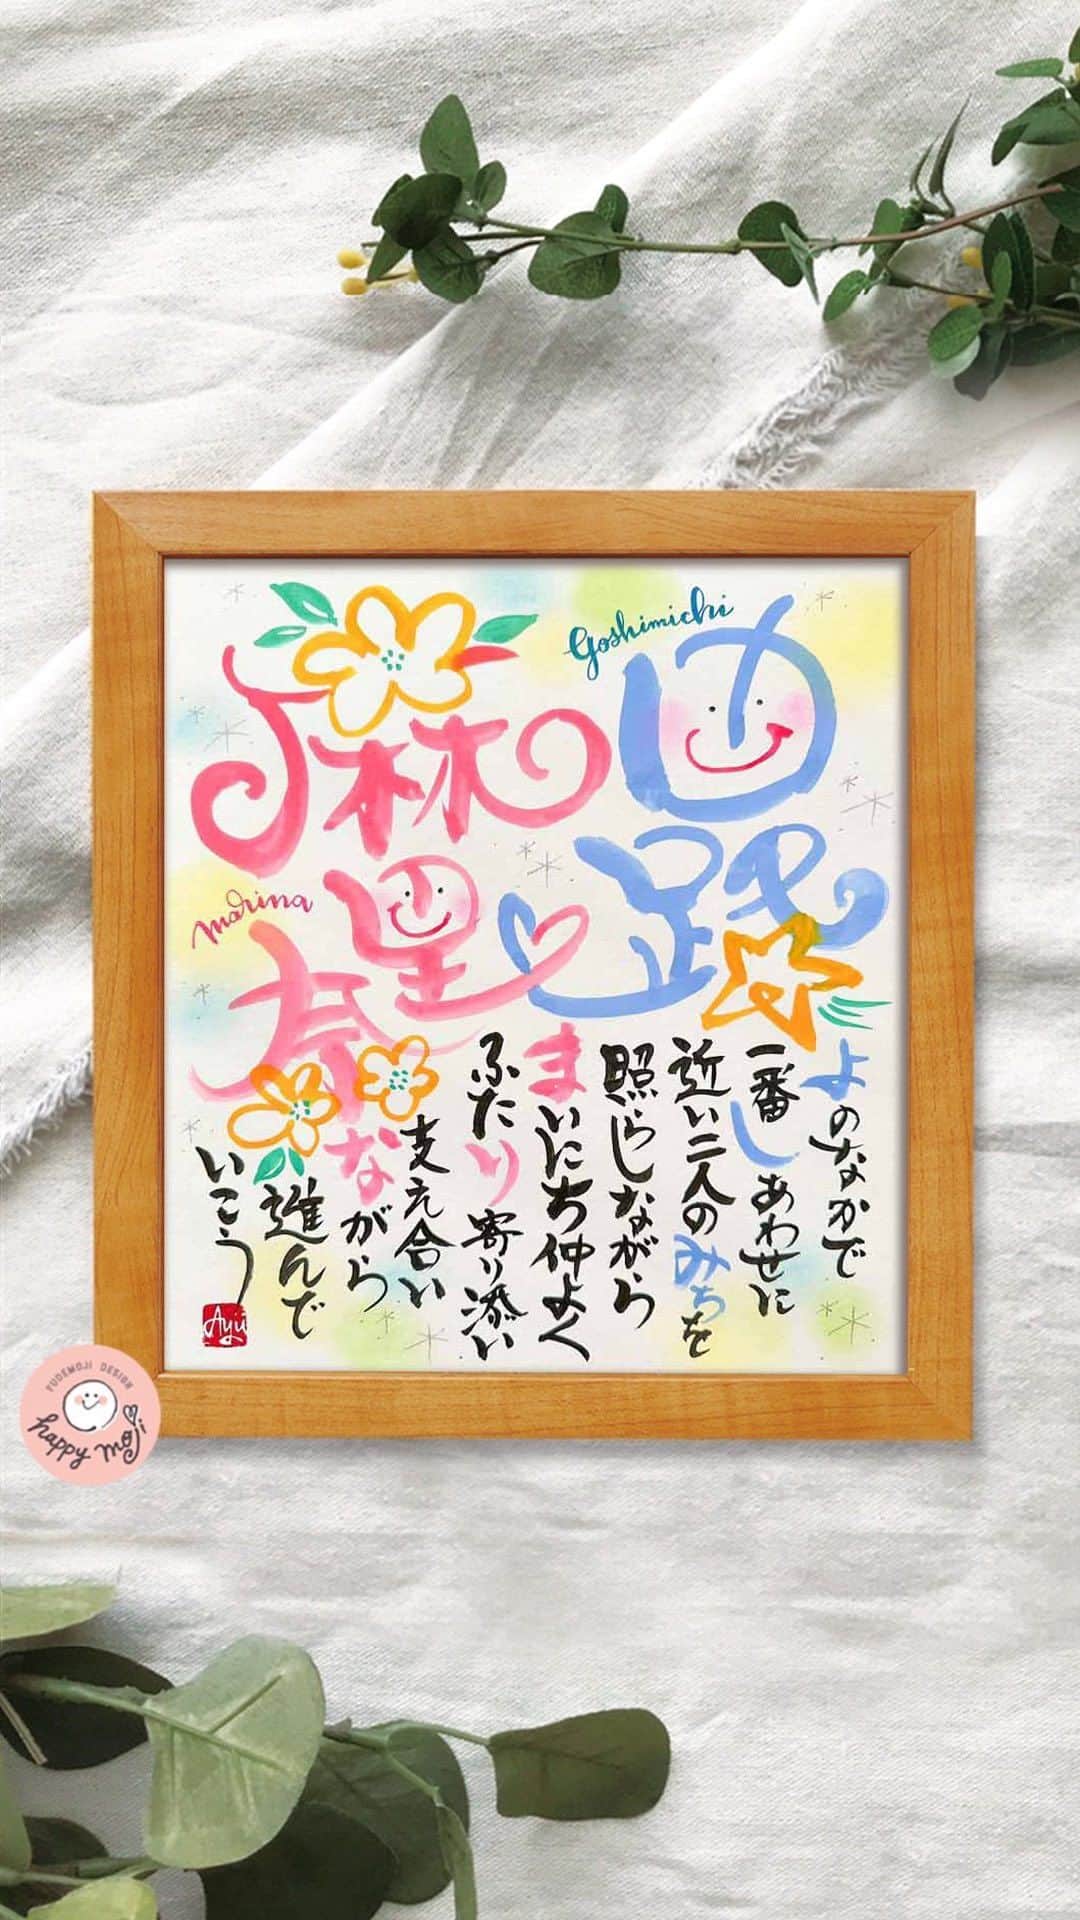 Yoshimichi
由路
麻里奈
marina
よのなかで
一番しあわせに
近い二人のみちを
照らしながら
まいにち仲よく
ふたり寄り添い
支え合い
ながら
進んで
いこう
Ayu
FUDEMOJI DESIGN
happy moji